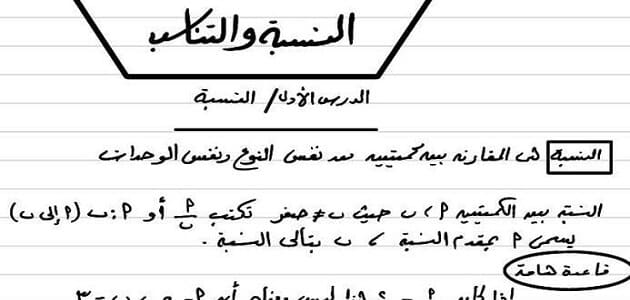 النسبة والتناسب
الدرس الأول / النسبة
النسبة هى المقارنة بين كميتين من نفس النوع ونفس الوحدات
النسبة بين الكميتين م ، ب حيث ب ≠ صفر تكتب م/ب أو م : ب (م إلى ب)
يسمى م بمقدم النسبة ، ب بتالى النسبة .
قاعدة هامة